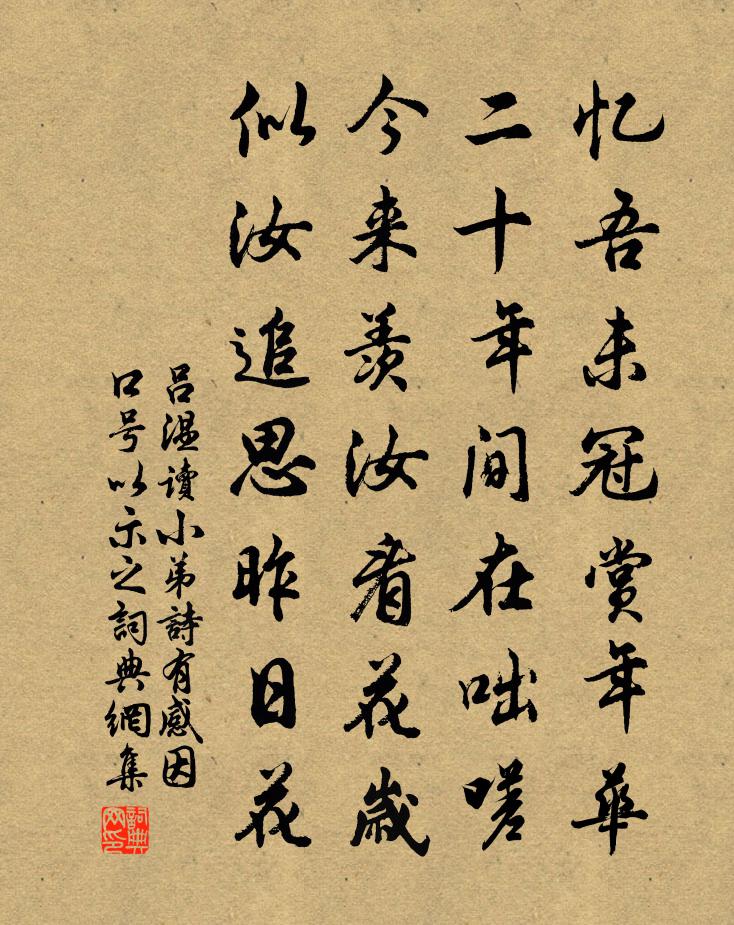 忆吾未冠赏年華
二十年间在咄嗟
今来羡汝看花歲
似汝追思昨日花
呂温讀小弟詩有感因
口号以示之詞典網集
詞典
网印